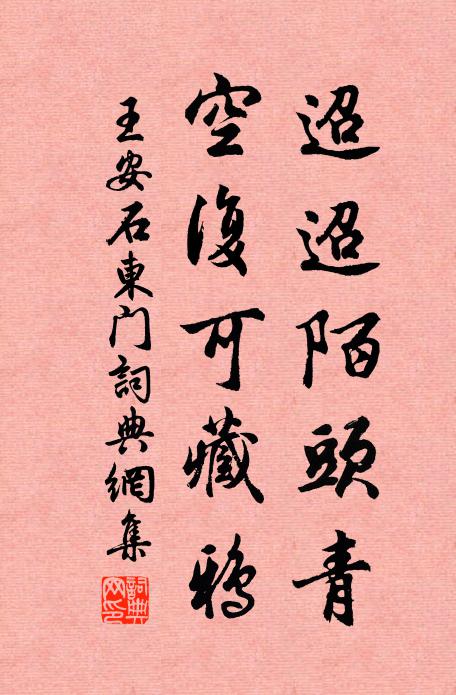 迢迢陌頭青
空復可藏鴉
王安石東門詞典網集
詞典網印